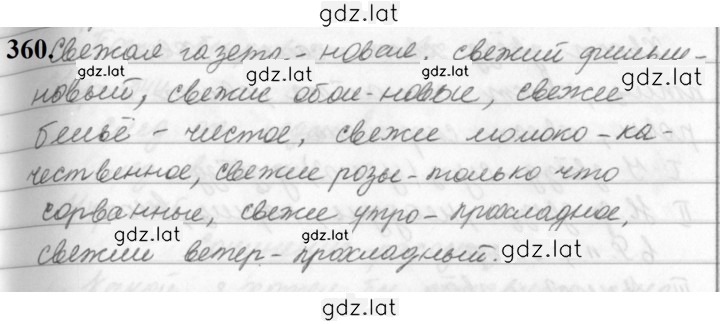 gdz.lat
360. Свежая газета - новая. свежий фильм -
gdz.lat gdz.lat gdz.lat gdz.lat
новый, свежие обои - новые, свежее
бельё - чистое, свежее молоко - ка-
чественное, свежие розы - только что
сорванные, свежее утро - прохладное,
gdz.lat gdz.lat gdz.lat
свежий ветер - прохладный.
gdz.lat